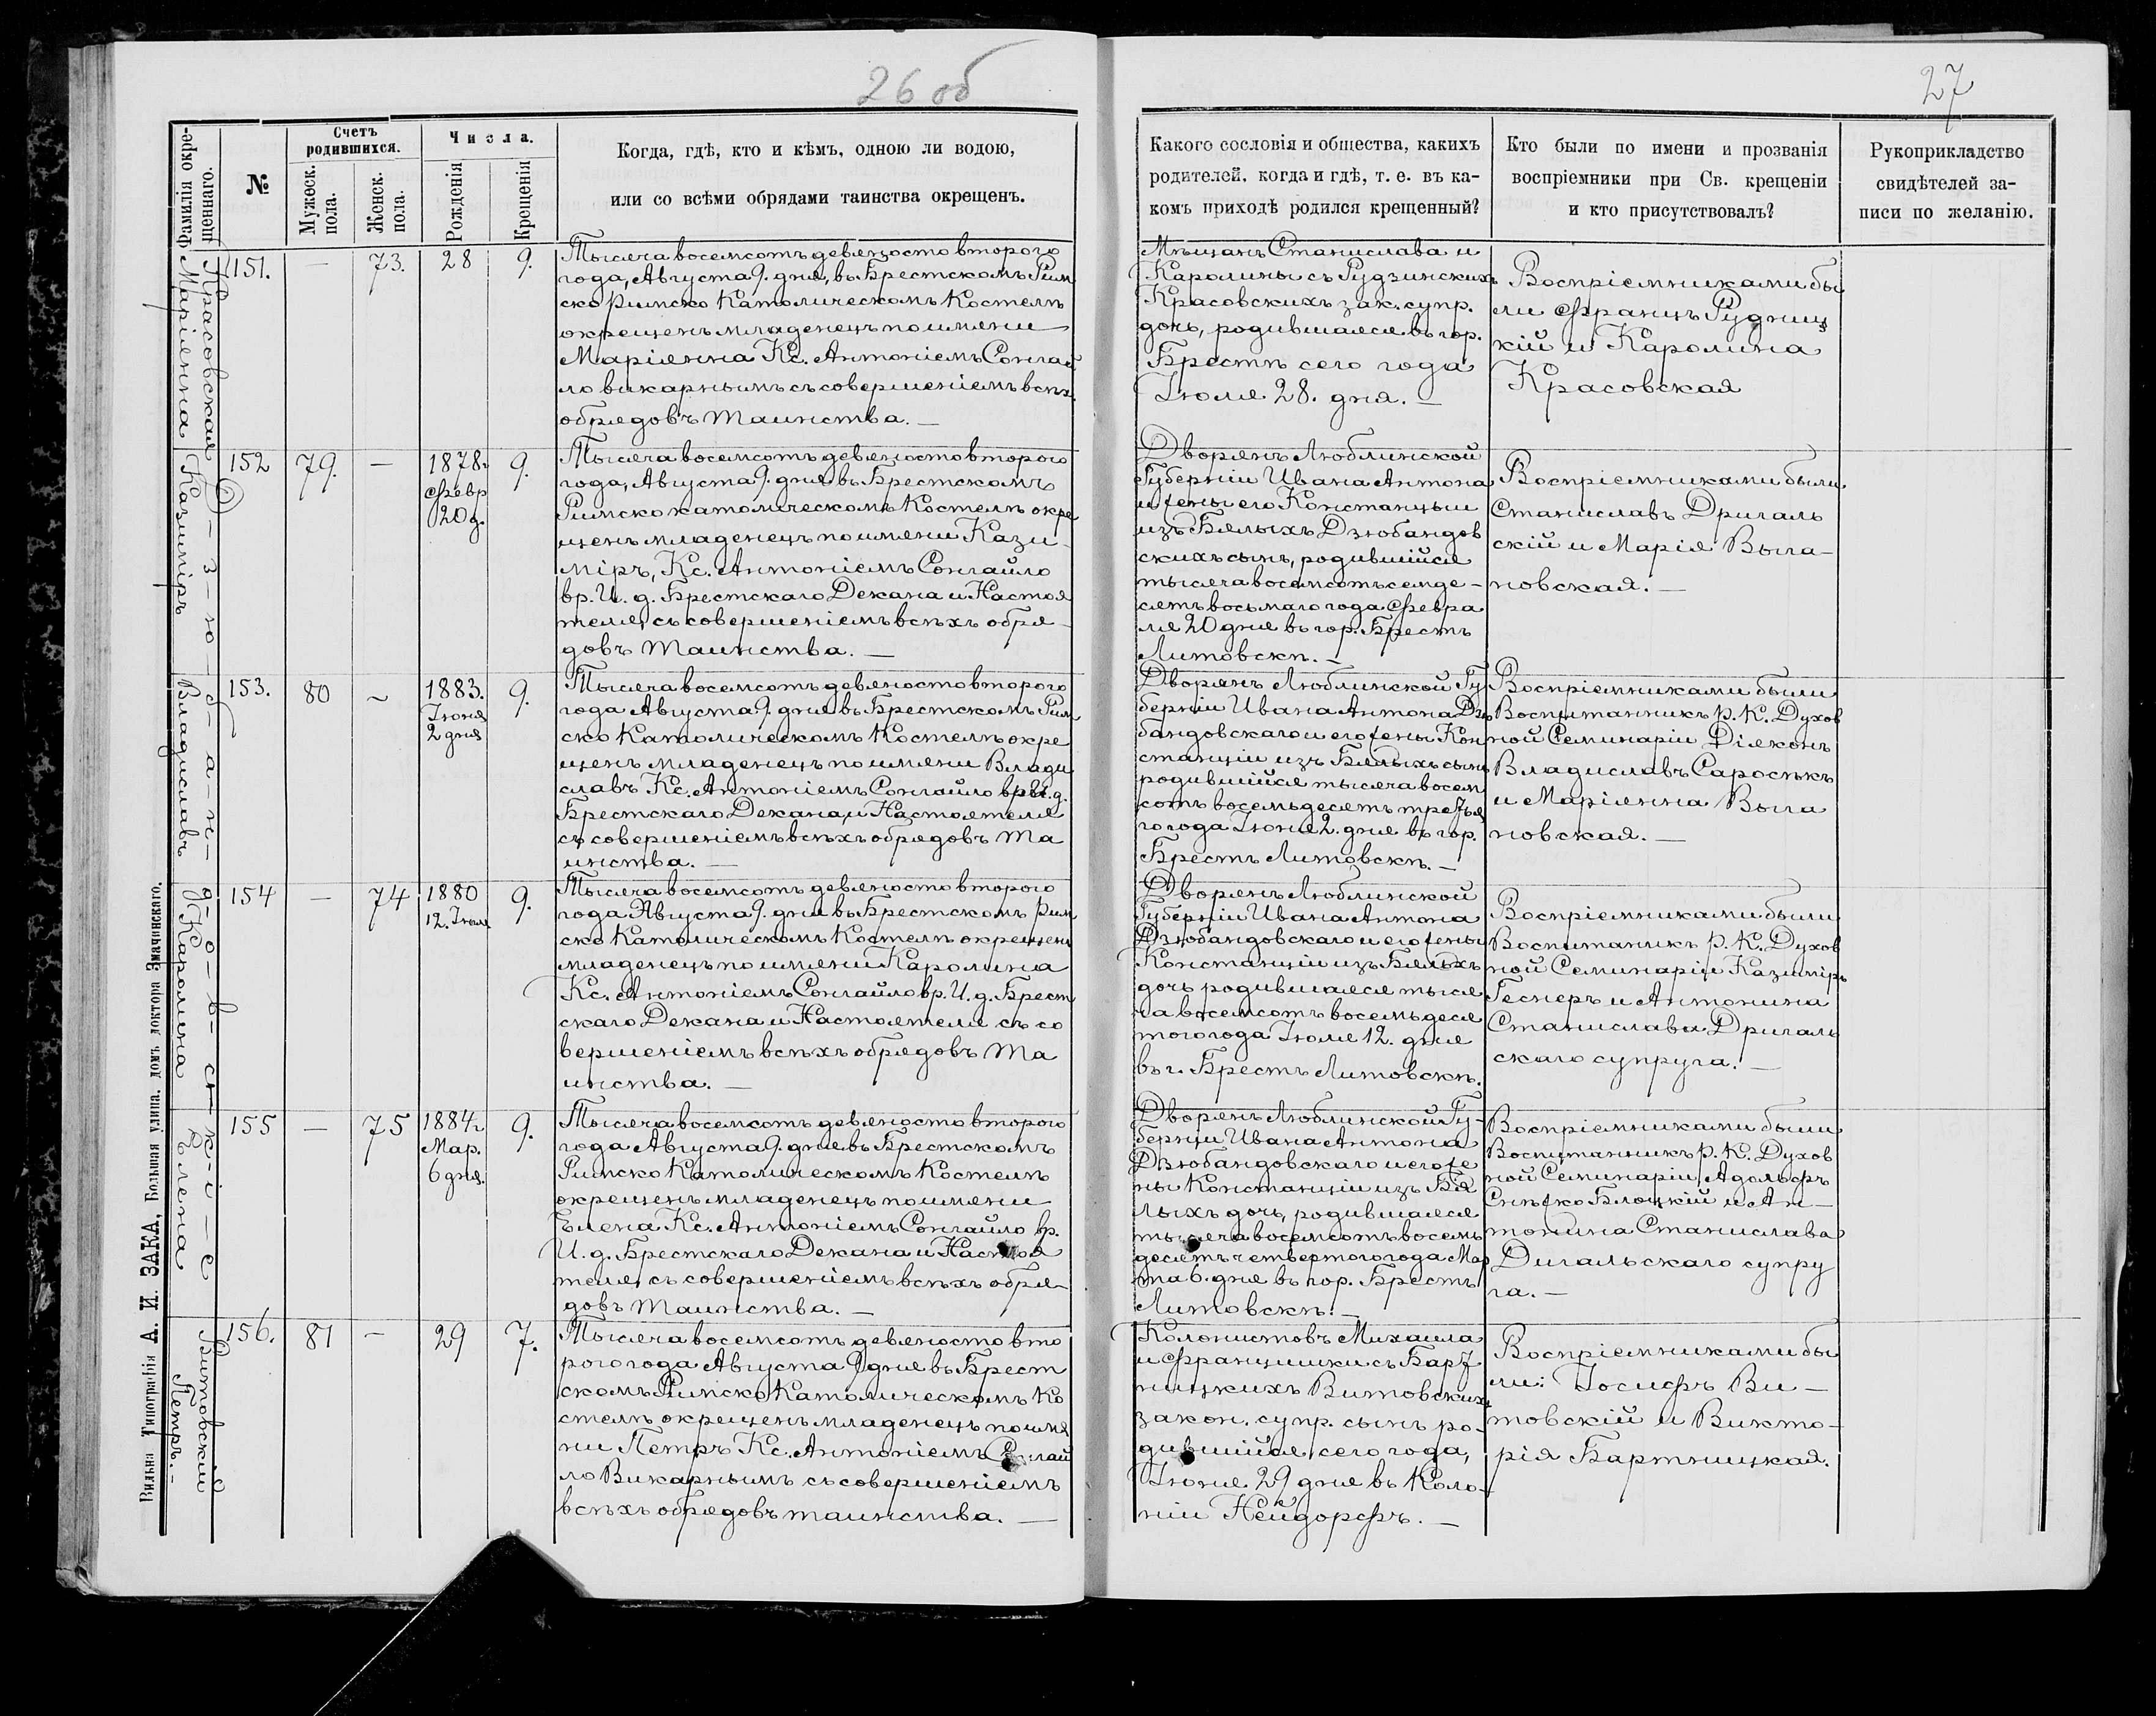 26 об
27
Фамилія окре-
щеннаго.
№
Счетъ
родившихся.
Мужеск.
пола.
Женск.
пола.
Числа.
Рожденія
Крещенія
Когда, гдѣ, кто и кѣмъ, одною ли водою,
или со всѣми обрядами таинства окрещенъ.
Какого сословія и общества, какихъ
родителей, когда и гдѣ, т. е. въ ка-
комъ приходѣ родился крещенный?
Кто были по имени и прозванія
воспріемники при Св. крещеніи
и кто присутствовалъ?
Рукоприкладство
свидѣтелей за-
писи по желанію.
Красовская
Маріянна
151.
—
73.
28
9.
Тысяча восемсотъ девяносто второго
года, Августа 9. дня, въ Брестскомъ Рим
ско Римско Католическомъ Костелѣ
окрещенъ младенецъ по имени
Маріянна Кс. Антоніемъ Сонгай
ло викарнымъ съ совершеніемъ всѣх.
обрядовъ таинства. —
Мѣщанъ Станислава и
Каролины съ Рудзинскихъ
Красовскихъ зак. супр.
дочь, родившаяся въ гор.
Брестѣ сего года
Іюля 28. дня. —
Воспріемниками бы
ли Францъ Рудниц
кій и Каролина
Красовская
Д-з-ю-б-а-н-д-о-в-с-к-і-е
Казиміръ
152
79.
—
1878г
Февр
20 д.
9.
Тысяча восемсотъ девяносто второго
года, Августа 9. дня въ Брестскомъ
Римско католическомъ Костелѣ окре
щенъ младенецъ по имени Кази-
міръ, Кс. Антоніемъ Сонгайло
вр. И. д. Брестскаго Декана и Настоя
теля, съ совершеніемъ всѣхъ обря-
довъ Таинства. —
Дворянъ Люблинской
Губерніи Ивана Антона
и жены его Констанціи
изъ Бялыхъ Дзюбандов
скихъ сынъ, родившійся
тысяча восемсотъ семде-
сятъ восьмаго года Февра
ля 20 дня въ гор. Брестъ
Литовскѣ. —
Воспріемниками были
Станиславъ Дригаль
скій и Марія Выга-
новская. —
Владиславъ
153.
80
~
1883.
Іюня
2 дня
9.
Тысяча восемсотъ девяносто второго
года Августа 9. дня въ Брестскомъ Рим
ско Католическомъ Костелѣ окре
щенъ младенецъ по имени Влади
славъ Кс. Антоніемъ Сонгайло вр И. д.
Брестскаго Декана, и Настоятеля
съ совершеніемъ всѣхъ обрядовъ Та
инства. —
Дворянъ Люблинской Гу
берніи Ивана Антона Дзю
бандовскаго и его жены Кон
станціи изъ Бялыхъ сынъ
родившійся тысяча восем
сотъ восемьдесятъ третья
го года Іюня 2. дня въ гор.
Брестъ Литовскѣ. —
Воспріемниками были
Воспитанникъ Р. К. Духов
ной Семинаріи Діяконъ
Владиславъ Саросѣкъ
и Маріянна Выга
новская. —
Каролина
154
—
74
1880
12. Іюля
9.
Тысяча восемсотъ девяносто второго
года Августа 9. дня въ Брестскомъ Рим
ско Католическомъ Костелѣ окрещенъ
младенецъ по имени Каролина
Кс. Антоніемъ Сонгайло вр. И. д. Брест
скаго Декана и Настоятеля съ со
вершеніемъ всѣхъ обрядовъ Та
инства. —
Дворянъ Люблинской
Губерніи Ивана Антона
Дзюбандовскаго и его жены
Констанціи изъ Бялыхъ
дочь родившаяся тыся
ча восемсотъ восемьдеся
того года Іюля 12. дня
въ г. Брестъ Литовскѣ.
Воспріемниками были
Воспитаникъ Р. К. Духов
ной Семинаріи Казиміръ
Геснеръ и Антонина
Станислава Дригаль
скаго супруга. —
Елена
155
—
75
1884г
Мар.
6 дня.
9.
Тысяча восемсотъ девяносто второго
года Августа 9. дня въ Брестскомъ
Римско Католическомъ Костелѣ
окрещенъ младенецъ по имени
Елена Кс. Антоніемъ Сонгайло вр.
И. д. Брестскаго Декана и Настоя
теля, съ совершеніемъ всѣхъ обря-
довъ Таинства. —
Дворянъ Люблинской Гу-
берніи Ивана Антона
Дзюбандовскаго и его же
ны Констанціи изъ Бя
лыхъ дочь, родившаяся
тысяча восемсотъ восемь
десятъ четвертого года Мар
та 6. дня въ гор. Брестъ
Литовскѣ. —
Воспріемниками были
Воспитанникъ Р. К. Духов
ной Семинаріи Адольфъ
Снѣжко Блоцкій и Ан-
тонина Станислава
Дигальскаго супру
га. —
Витовскій
Петръ. —
156.
81
—
29
7.
Тысяча восемсотъ девяносто вто
рого года Августа 9 дня въ Брест
скомъ Римско Католическомъ Ко
стелѣ окрещенъ младенецъ по имя
ни Петръ Кс. Антоніемъ Сонгай
ло Викарнымъ съ совершеніемъ
всѣхъ обрядовъ таинства. —
Колонистовъ Михаила
и Францишки съ Барт
ницкихъ Витовскихъ
закон. супр. сынъ ро-
дившійся, сего года,
Іюня 29 дня въ Коло-
ніи Нейдорфъ. —
Воспріемниками бы
ли: Іосифъ Ви-
товскій и Викто-
рія Бартницкая.
Вильна Типографія А. И. ЗАКА, Большая улица, домъ доктора Змачинскаго.